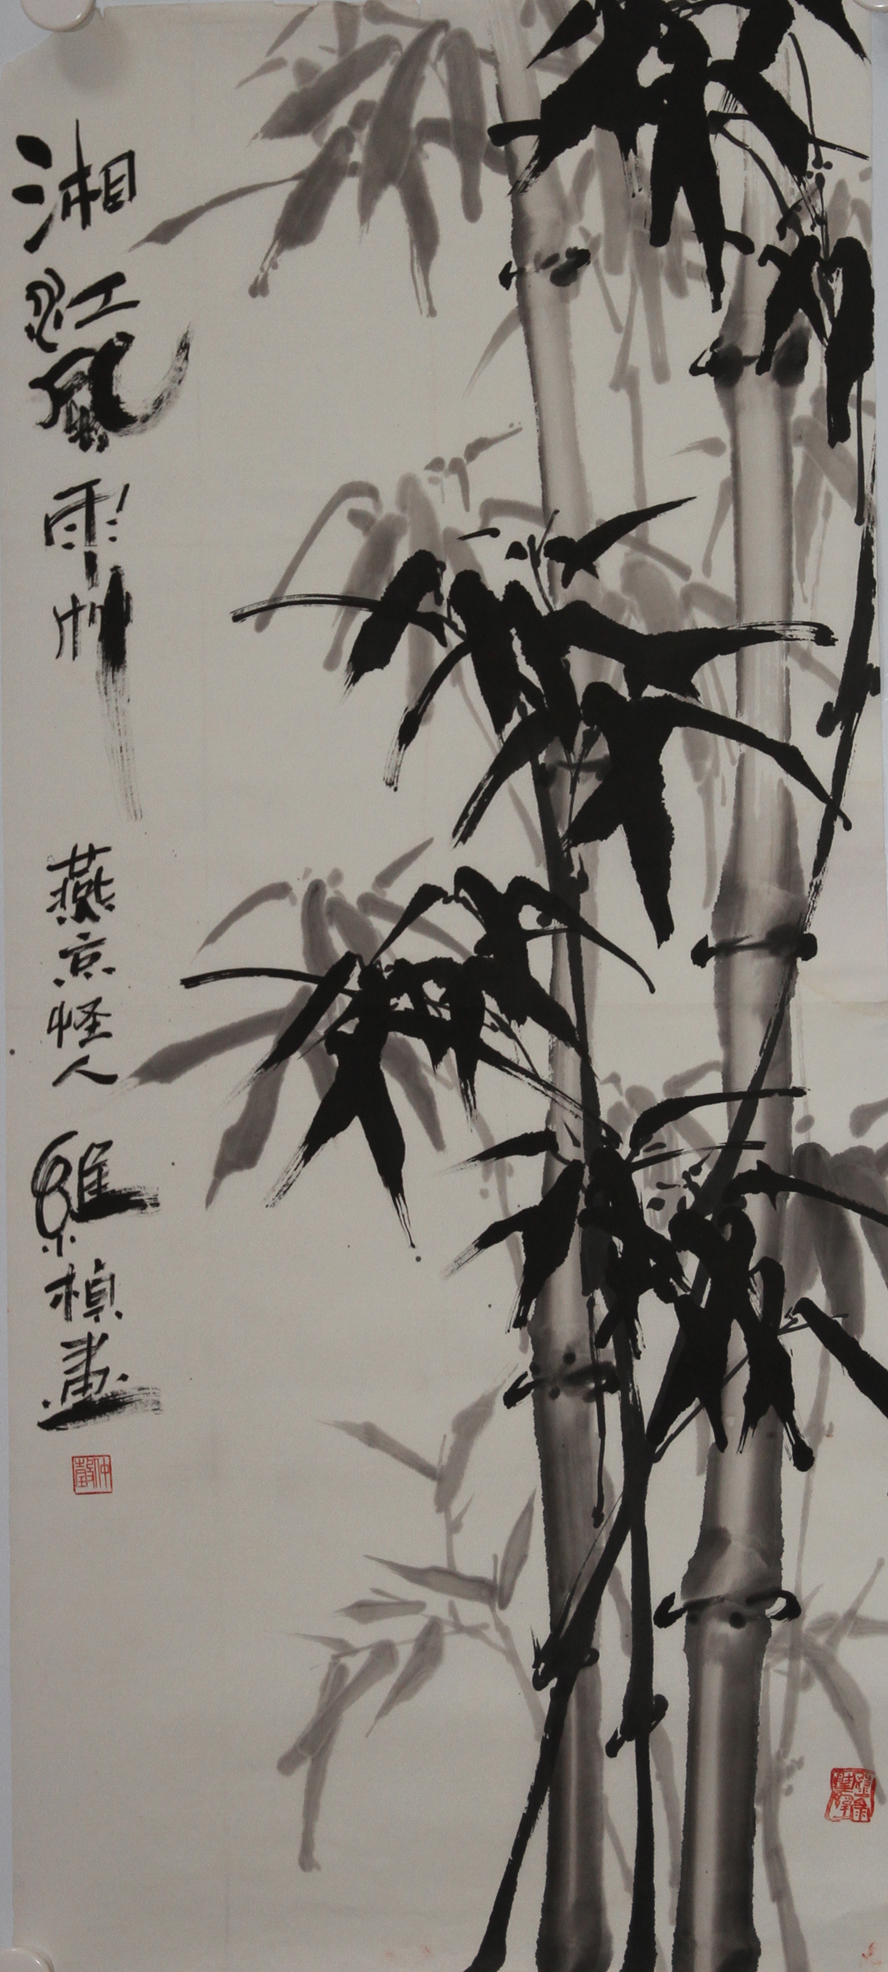 湘江風雨竹 燕京怪人 維楨畫